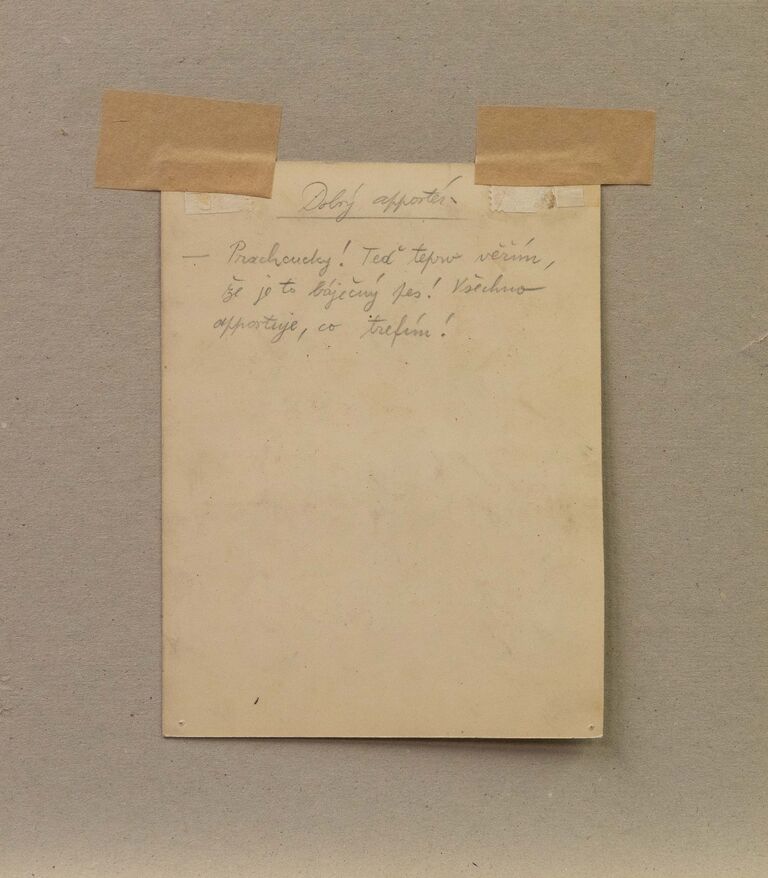 Dobrý apportér
— Prachcucky! Teď teprv věřím,
že je to báječný pes! Všechno
apportuje, co trefím!